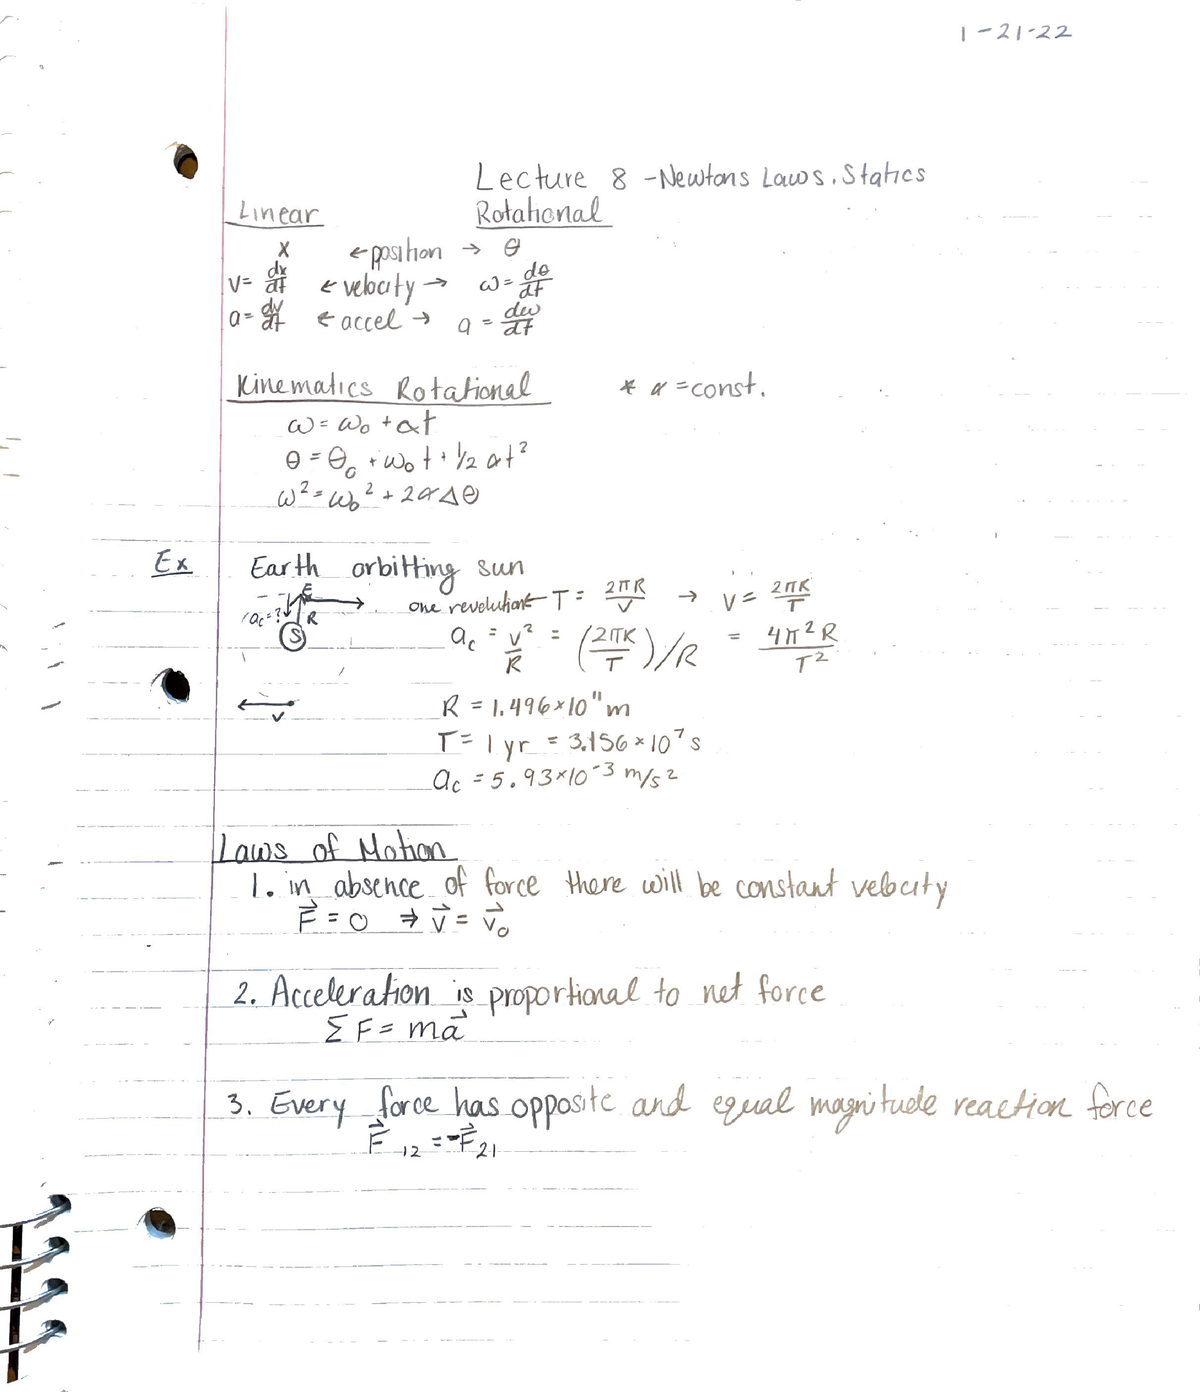 1-21-22
Lecture 8 - Newtons Laws, Statics
Linear Rotational
x ← position → θ
v = dx/dt ← velocity → ω = dθ/dt
a = dv/dt ← accel → a = dω/dt
Kinematics Rotational * α = const.
ω = ω₀ + αt
θ = θ₀ + ω₀t + 1/2 αt²
ω² = ω₀² + 2αΔθ
Ex Earth orbitting sun
E
one revolution← T = 2πR/v → v = 2πR/T
ac = ? R
S
ac = v²/R = (2πR/T)/R = 4π²R/T²
v
R = 1.496×10¹¹ m
T = 1 yr = 3.156×10⁷ s
ac = 5.93×10⁻³ m/s²
Laws of Motion
1. in absence of force there will be constant velocity
F⃗ = 0 ⇒ v⃗ = v⃗₀
2. Acceleration is proportional to net force
Σ F = ma⃗
3. Every force has opposite and equal magnitude reaction force
F⃗₁₂ = -F⃗₂₁